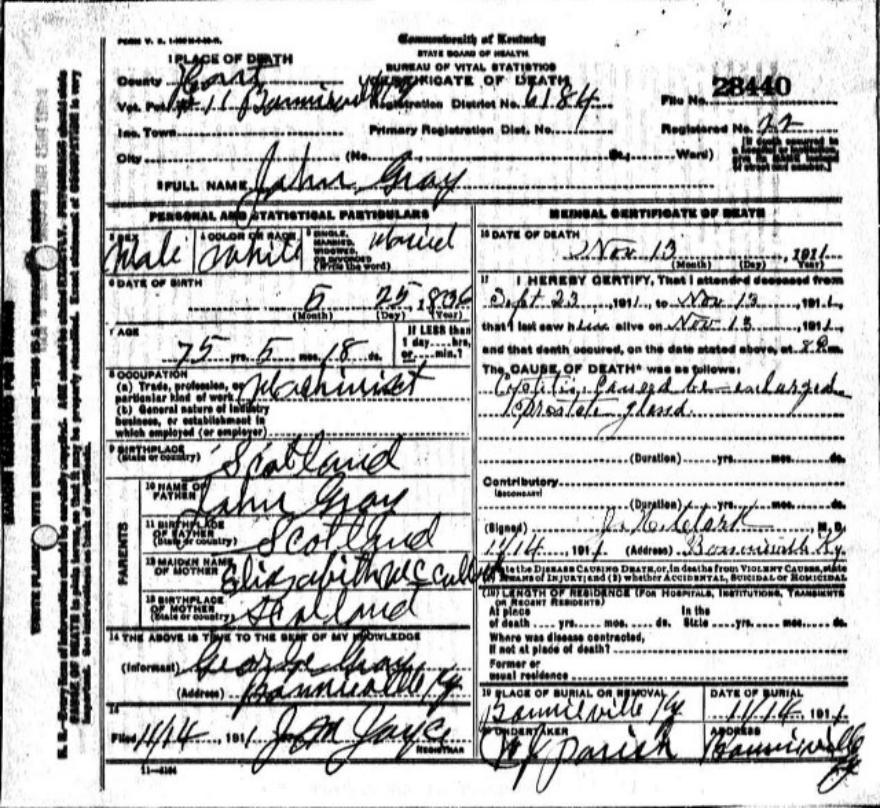 Commonwealth of Kentucky
STATE BOARD OF HEALTH
BUREAU OF VITAL STATISTICS
CERTIFICATE OF DEATH
1 PLACE OF DEATH
County Hart
Vot. Pct. # 11 Bonnieville Ky Registration District No. 6184 File No. 28440
Inc. Town Primary Registration Dist. No. Registered No. 22
City (No. St., Ward)
2 FULL NAME John Gray
PERSONAL AND STATISTICAL PARTICULARS
3 SEX Male
4 COLOR OR RACE White
5 SINGLE, MARRIED, WIDOWED, OR DIVORCED (Write the word) Married
6 DATE OF BIRTH
5 25, 1836
(Month) (Day) (Year)
7 AGE
75 yrs. 5 mos. 18 ds.
If LESS than 1 day hrs, or min.?
8 OCCUPATION
(a) Trade, profession, or
particular kind of work Machinist
(b) General nature of industry
business, or establishment in
which employed (or employer)
9 BIRTHPLACE
(State or country) Scotland
PARENTS
10 NAME OF FATHER John Gray
11 BIRTHPLACE OF FATHER (State or country) Scotland
12 MAIDEN NAME OF MOTHER Elizabeth
13 BIRTHPLACE OF MOTHER (State or country)
14 THE ABOVE IS TRUE TO THE BEST OF MY KNOWLEDGE
(Informant) George Gray
(Address) Bonnieville Ky
15
Filed 11/14, 1911 REGISTRAR
11-3184
MEDICAL CERTIFICATE OF DEATH
16 DATE OF DEATH
Nov 13, 1911
(Month) (Day) (Year)
17 I HEREBY CERTIFY, That I attended deceased from
Sept 23, 1911, to Nov 13, 1911,
that I last saw him alive on Nov 13, 1911,
and that death occured, on the date stated above, at 8 m.
The CAUSE OF DEATH* was as follows:
Cystitis caused by enlarged
prostate gland
(Duration) yrs. mos. ds.
Contributory
(SECONDARY)
(Duration) yrs. mos. ds.
(Signed) Clark M. D.
11/14 1911 (Address) Bonnieville Ky.
state the DISEASE CAUSING DEATH, or, in deaths from VIOLENT CAUSES, state
MEANS of INJURY; and (2) whether ACCIDENTAL, SUICIDAL or HOMICIDAL
(18) LENGTH OF RESIDENCE (FOR HOSPITALS, INSTITUTIONS, TRANSIENTS OR RECENT RESIDENTS)
At place In the
of death yrs. mos. ds. State yrs. mos. ds.
Where was disease contracted,
if not at place of death?
Former or
usual residence
19 PLACE OF BURIAL OR REMOVAL DATE OF BURIAL
Bonnieville Ky 11/14, 1911
20 UNDERTAKER ADDRESS
Parish Bonnieville Ky